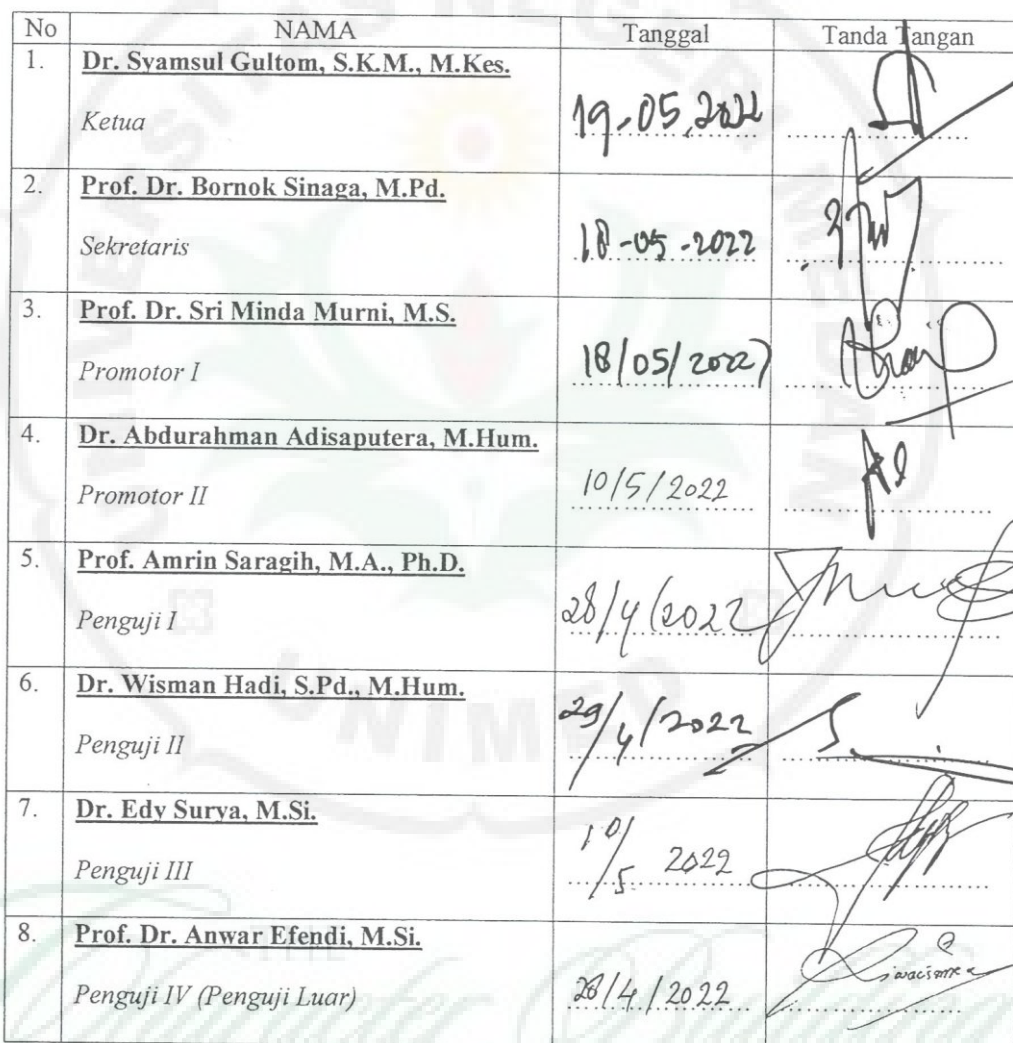 No NAMA Tanggal Tanda Tangan
1. Dr. Syamsul Gultom, S.K.M., M.Kes.
Ketua 19-05.2022
2. Prof. Dr. Bornok Sinaga, M.Pd.
Sekretaris 18-05-2022
3. Prof. Dr. Sri Minda Murni, M.S.
Promotor I 18/05/2022
4. Dr. Abdurahman Adisaputera, M.Hum.
Promotor II 10/5/2022
5. Prof. Amrin Saragih, M.A., Ph.D.
Penguji I 28/4/2022
6. Dr. Wisman Hadi, S.Pd., M.Hum.
Penguji II 29/4/2022
7. Dr. Edy Surya, M.Si.
Penguji III 10/5 2022
8. Prof. Dr. Anwar Efendi, M.Si.
Penguji IV (Penguji Luar) 28/4/2022
UNIVERSITAS NEGERI MEDAN
UNIMED
THE
Character Building